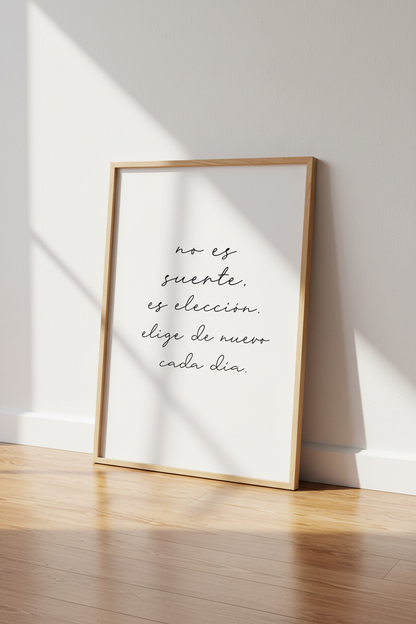 no es
suerte,
es elección.
elige de nuevo
cada día.